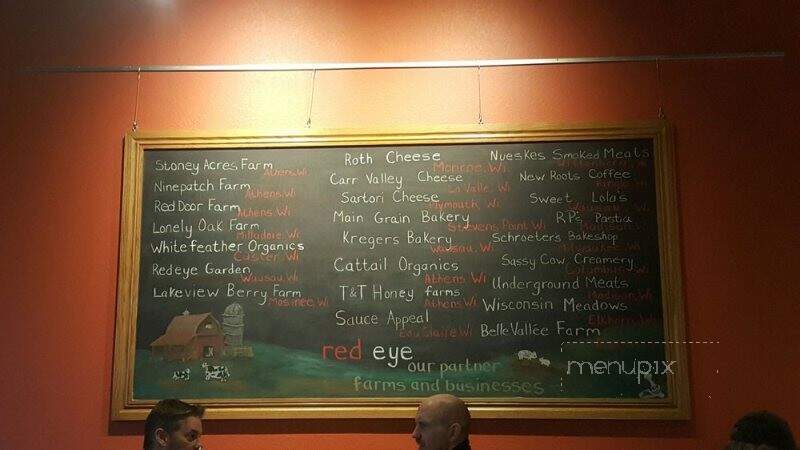 Stoney Acres Farm
Athens, Wi
Ninepatch Farm
Athens, Wi
Red Door Farm
Athens, Wi
Lonely Oak Farm
Milladore, Wi
Whitefeather Organics
Custer, Wi
Redeye Garden
Wausau, Wi
Lakeview Berry Farm
Mosinee, Wi
Roth Cheese
Monroe, Wi
Carr Valley Cheese
La Valle, Wi
Sartori Cheese
Plymouth, Wi
Main Grain Bakery
Stevens Point Wi
Kregers Bakery
Wausau, Wi
Cattail Organics
Athens Wi
T&T Honey farms
Athens, Wi
Sauce Appeal
Eau Claire, Wi
Nueskes Smoked Meats
New Roots Coffee
Sweet Lola's
Wausau
R.P's Pastia
Madison
Schroeter's Bakeshop
Sassy Cow Creamery
Columbus
Underground Meats
Madison, Wi
Wisconsin Meadows
Elkhorn
Belle Vallée Farm
red eye
our partner
farms and businesses
menupix